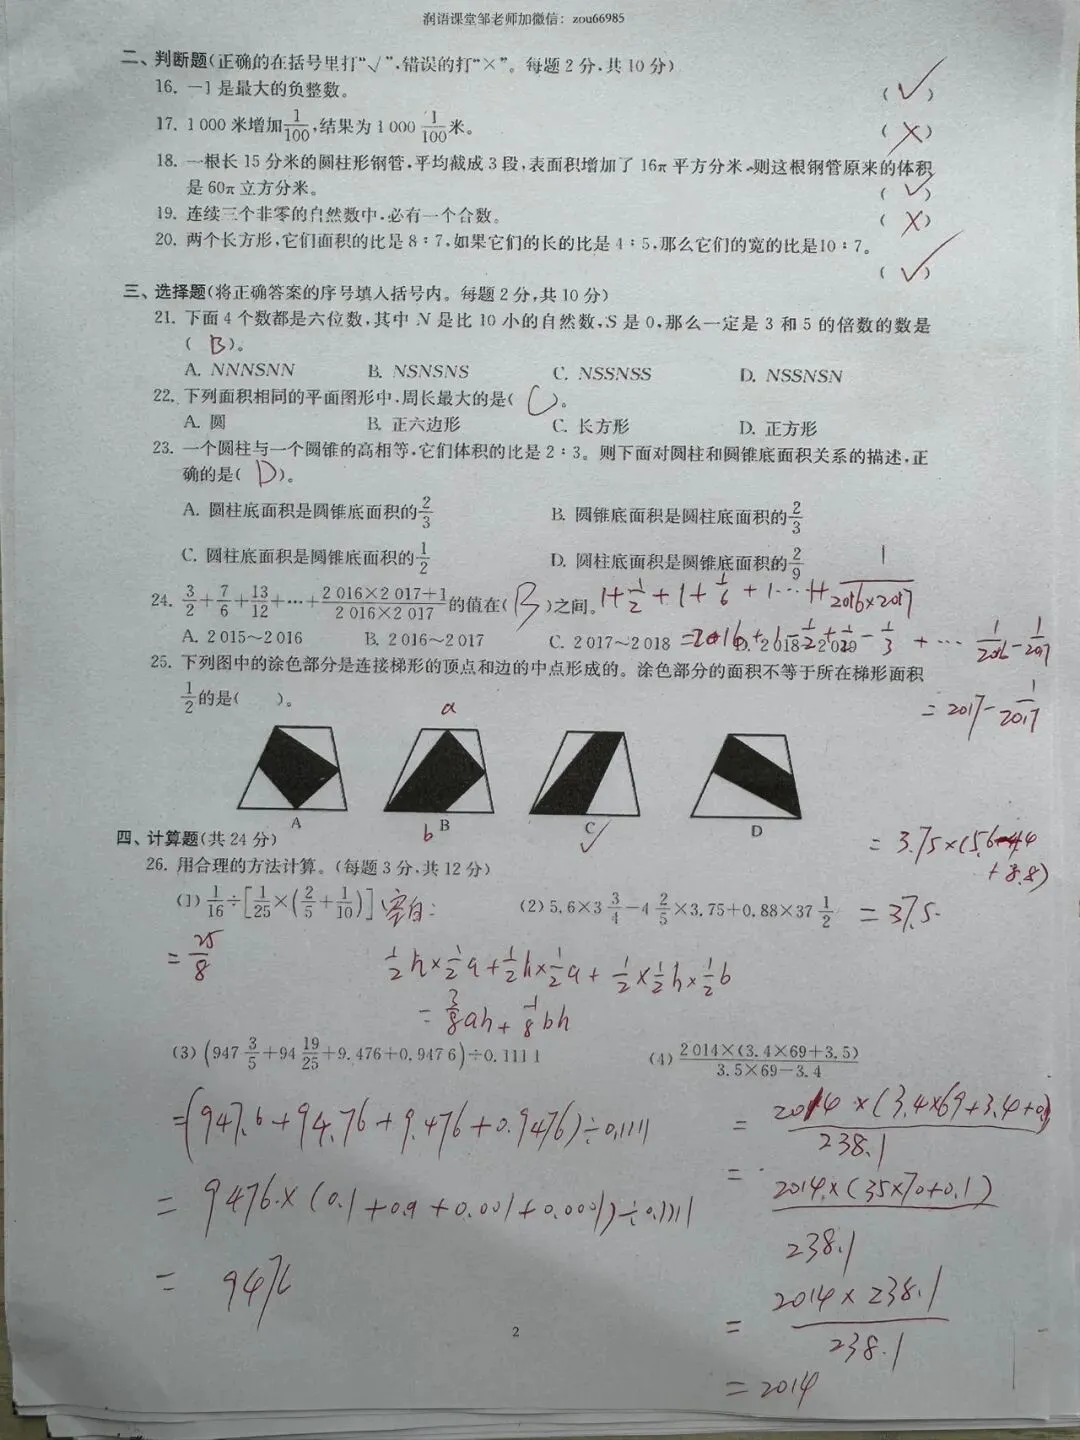 润语课堂邹老师加微信：zou66985
二、判断题(正确的在括号里打“√”,错误的打“×”。每题2分,共10分)
16. －1是最大的负整数。 (√)
17. 1 000米增加1/100,结果为1 000 1/100米。 (×)
18. 一根长15分米的圆柱形钢管,平均截成3段,表面积增加了16π平方分米,则这根钢管原来的体积
是60π立方分米。 (√)
19. 连续三个非零的自然数中,必有一个合数。 (×)
20. 两个长方形,它们面积的比是8∶7,如果它们的长的比是4∶5,那么它们的宽的比是10∶7。
(√)
三、选择题(将正确答案的序号填入括号内。每题2分,共10分)
21. 下面4个数都是六位数,其中N是比10小的自然数,S是0,那么一定是3和5的倍数的数是
( B )。
A. NNNSNN B. NSNSNS C. NSSNSS D. NSSNSN
22. 下列面积相同的平面图形中,周长最大的是( C )。
A. 圆 B. 正六边形 C. 长方形 D. 正方形
23. 一个圆柱与一个圆锥的高相等,它们体积的比是2∶3。则下面对圆柱和圆锥底面积关系的描述,正
确的是( D )。
A. 圆柱底面积是圆锥底面积的2/3 B. 圆锥底面积是圆柱底面积的2/3
C. 圆柱底面积是圆锥底面积的1/2 D. 圆柱底面积是圆锥底面积的2/9
24. 3/2+7/6+13/12+…+(2 016×2 017+1)/(2 016×2 017)的值在( B )之间。 1+1/2+1+1/6+1…1+1/(2016×2017)
A. 2 015～2 016 B. 2 016～2 017 C. 2 017～2 018 D. 2 018～2 019
=2016+1-1/2+1/2-1/3+…1/2016-1/2017
=2017-1/2017
25. 下列图中的涂色部分是连接梯形的顶点和边的中点形成的。涂色部分的面积不等于所在梯形面积
1/2的是( )。
a
A b B C √ D
四、计算题(共24分)
26. 用合理的方法计算。(每题3分,共12分)
(1) 1/16÷[1/25×(2/5+1/10)] 空白:
=25/8
(2) 5.6×3 3/4－4 2/5×3.75+0.88×37 1/2
=3.75×(5.6-4.4+8.8)
=37.5
1/2h×1/2a+1/2h×1/2a+1/2×1/2h×1/2b
=3/8ah+1/8bh
(3) (947 3/5+94 19/25+9.476+0.947 6)÷0.111 1
=(947.6+94.76+9.476+0.9476)÷0.1111
=9476×(0.1+0.9+0.001+0.0001)÷0.1111
=9476
(4) 2 014×(3.4×69+3.5)/(3.5×69－3.4)
=2014×(3.4×69+3.4+0.1)/238.1
=2014×(35×70+0.1)/238.1
=2014×238.1/238.1
=2014
2